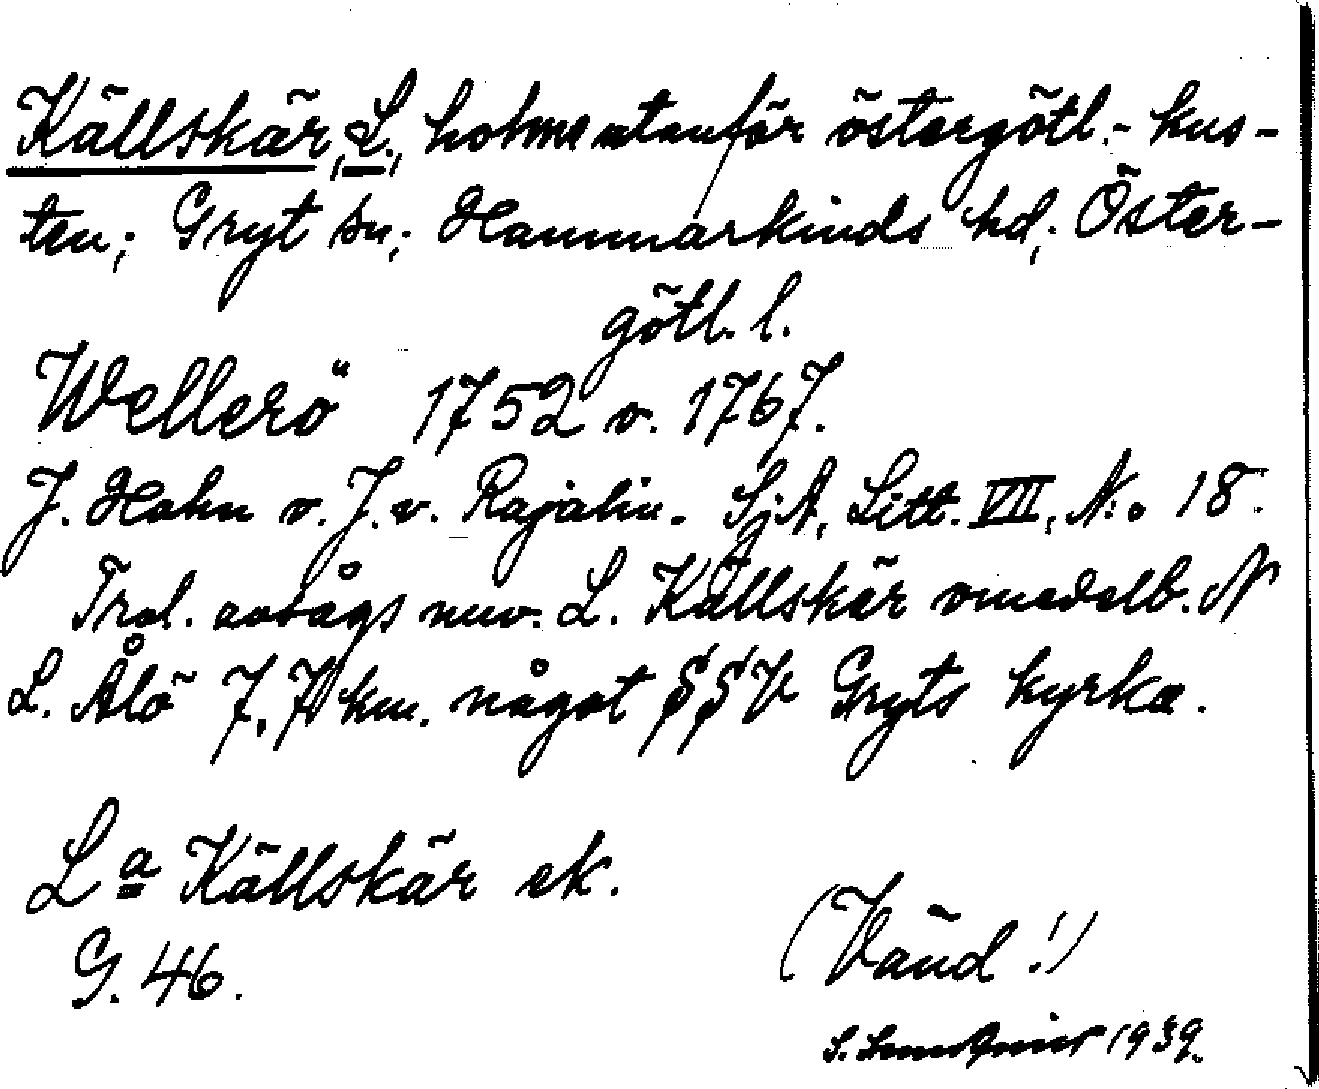 Källskär, L., holme utanför östergötl.- kus-
ten; Gryt sn; Hammarkinds hd; Öster-
götl. l.
Wellerö 1752 v. 1767.
J. Hahn v. J. v. Rajalin. SjA, Litt. VII, N:o 18.
Trol. avsågs nuv. L. Källskär omedelb. N
L. Ålö 7,7 km. något SSV Gryts kyrka.
La Källskär ek.
G. 46.
(Vänd!)
S. 1939.